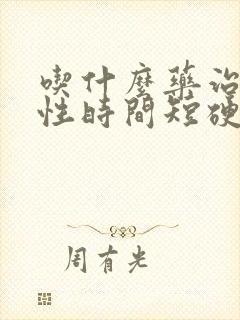 喫什麼藥治
性時間短硬
周有光